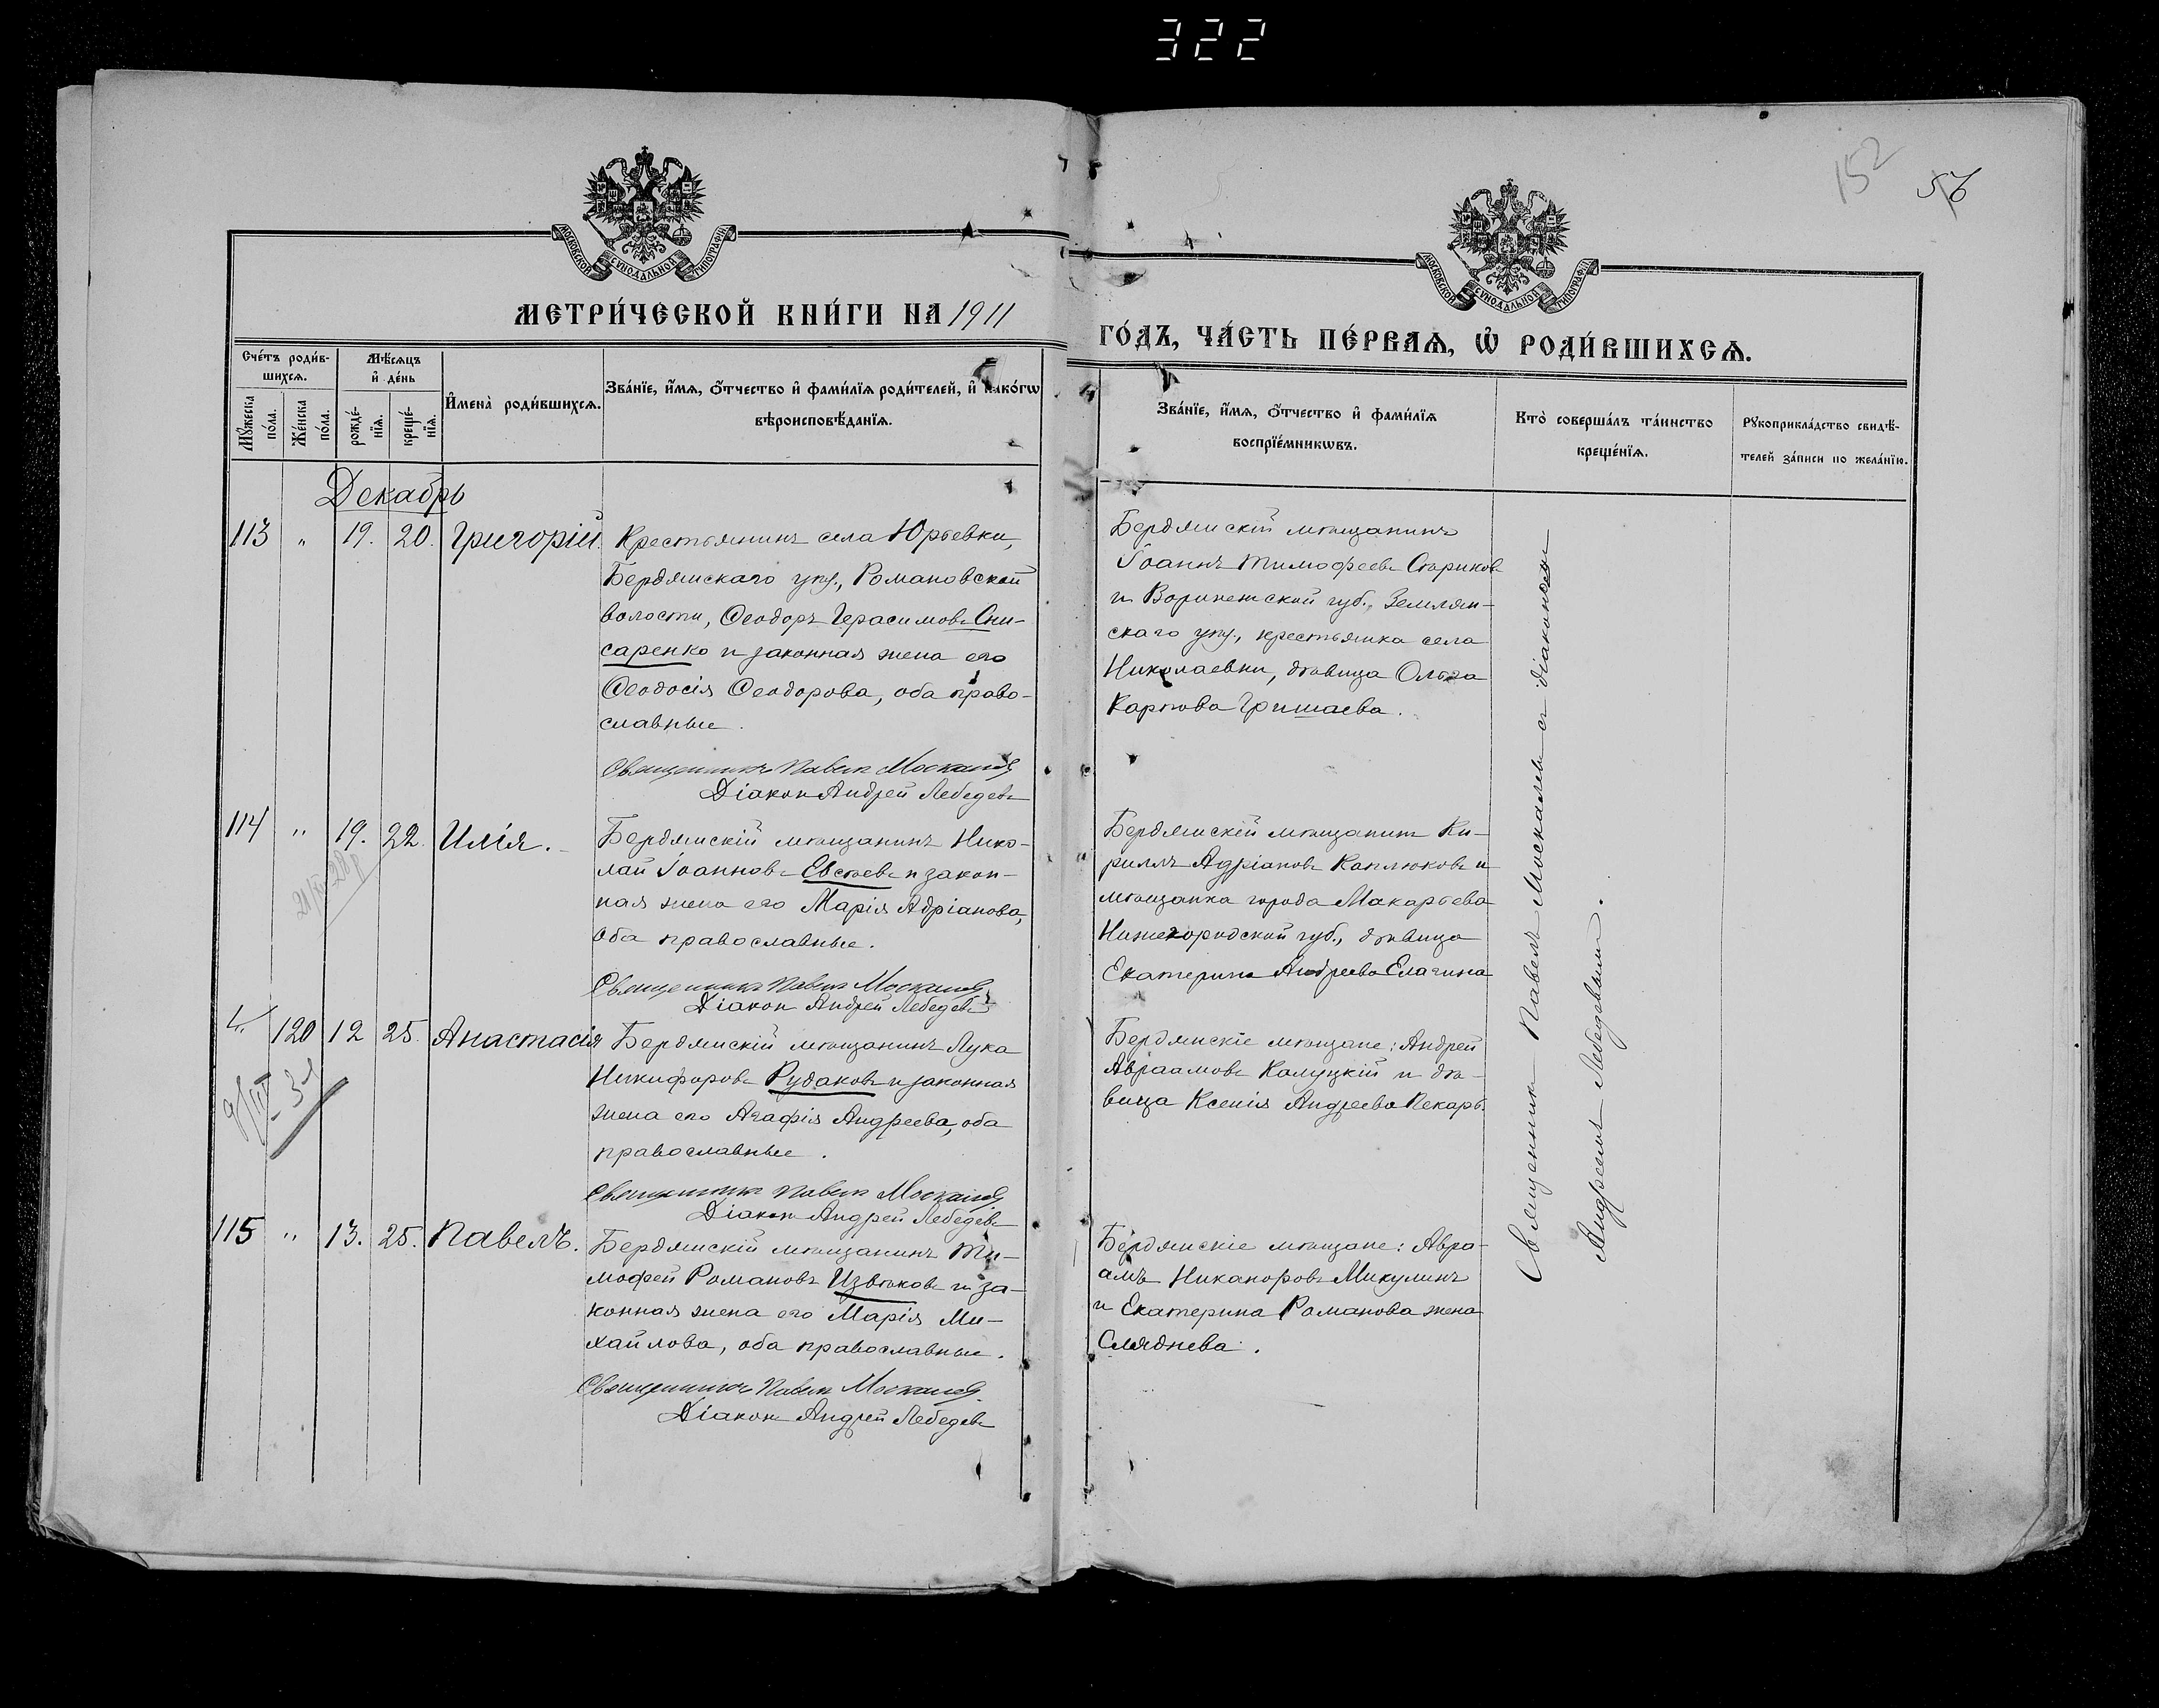 322
152
56
МОСКОВСКОЙ СѴНОДАЛЬНОЙ ТИПОГРАФІИ
МОСКОВСКОЙ СѴНОДАЛЬНОЙ ТИПОГРАФІИ
МЕТРИ́ЧЕСКОЙ КНИ́ГИ НА 1911
ГО́ДЪ, ЧА́СТЬ ПЕ́РВАѦ, Ѡ҆ РОДИ́ВШИХСѦ.
Сче́тъ роди́в-
шихсѧ.
Мꙋ́жеска
по́ла.
Же́нска
по́ла.
Мѣ́сѧцъ
и҆ де́нь
рожде́-
нїѧ.
креще́-
нїѧ.
И҆мена̀ роди́вшихсѧ.
Зва́нїе, и҆́мѧ, ѻ҆́тчество и҆ фами́лїѧ роди́телей, и҆ како́гѡ
вѣроисповѣ́данїѧ.
Зва́нїе, и҆́мѧ, ѻ҆́тчество и҆ фами́лїѧ
воспрїе́мникѡвъ.
Кто̀ соверша́лъ та́инство
креще́нїѧ.
Рꙋкоприкла́дство свидѣ́-
телей за́писи по жела́нїю.
Декабрь
113 " 19. 20. Григорій.
Крестьянинъ села Юрьевки,
Бердянскаго уѣз., Романовской
волости, Ѳеодоръ Герасимовъ Сни-
саренко и законная жена его
Ѳеодосія Ѳеодорова, оба право-
славные.
Священникъ Павелъ Москалевъ
Діаконъ Андрей Лебедевъ
Бердянскій мѣщанинъ
Іоаннъ Тимофеевъ Стариковъ
и Воронежской губ., Землян-
скаго уѣз., крестьянка села
Николаевки, дѣвица Ольга
Карпова Гришаева.
114 " 19. 22. Илія.
Бердянскій мѣщанинъ Нико-
лай Іоанновъ Евсѣевъ и закон-
ная жена его Марія Адріанова,
оба православные.
Священникъ Павелъ Москалевъ
Діаконъ Андрей Лебедевъ
Бердянскій мѣщанинъ Ки-
риллъ Адріановъ Каплюковъ и
мѣщанка города Макарьева
Нижегородской губ., дѣвица
Екатерина Андреева Елагина
" 120 12 25. Анастасія
Бердянскій мѣщанинъ Лука
Никифоровъ Рудаковъ и законная
жена его Агафія Андреева, оба
православные.
Священникъ Павелъ Москалевъ
Діаконъ Андрей Лебедевъ
Бердянскіе мѣщане: Андрей
Авраамовъ Калуцкій и дѣ-
вица Ксенія Андреева Пекарь.
115 " 13. 25. Павелъ.
Бердянскій мѣщанинъ Ти-
мофей Романовъ Извѣковъ и за-
конная жена его Марія Ми-
хайлова, оба православные.
Священникъ Павелъ Москалевъ
Діаконъ Андрей Лебедевъ
Бердянскіе мѣщане: Авра-
амъ Никаноровъ Микулинъ
и Екатерина Романова жена
Слѣднева.
Священникъ Павелъ Москалевъ съ діакономъ
Андреемъ Лебедевымъ.